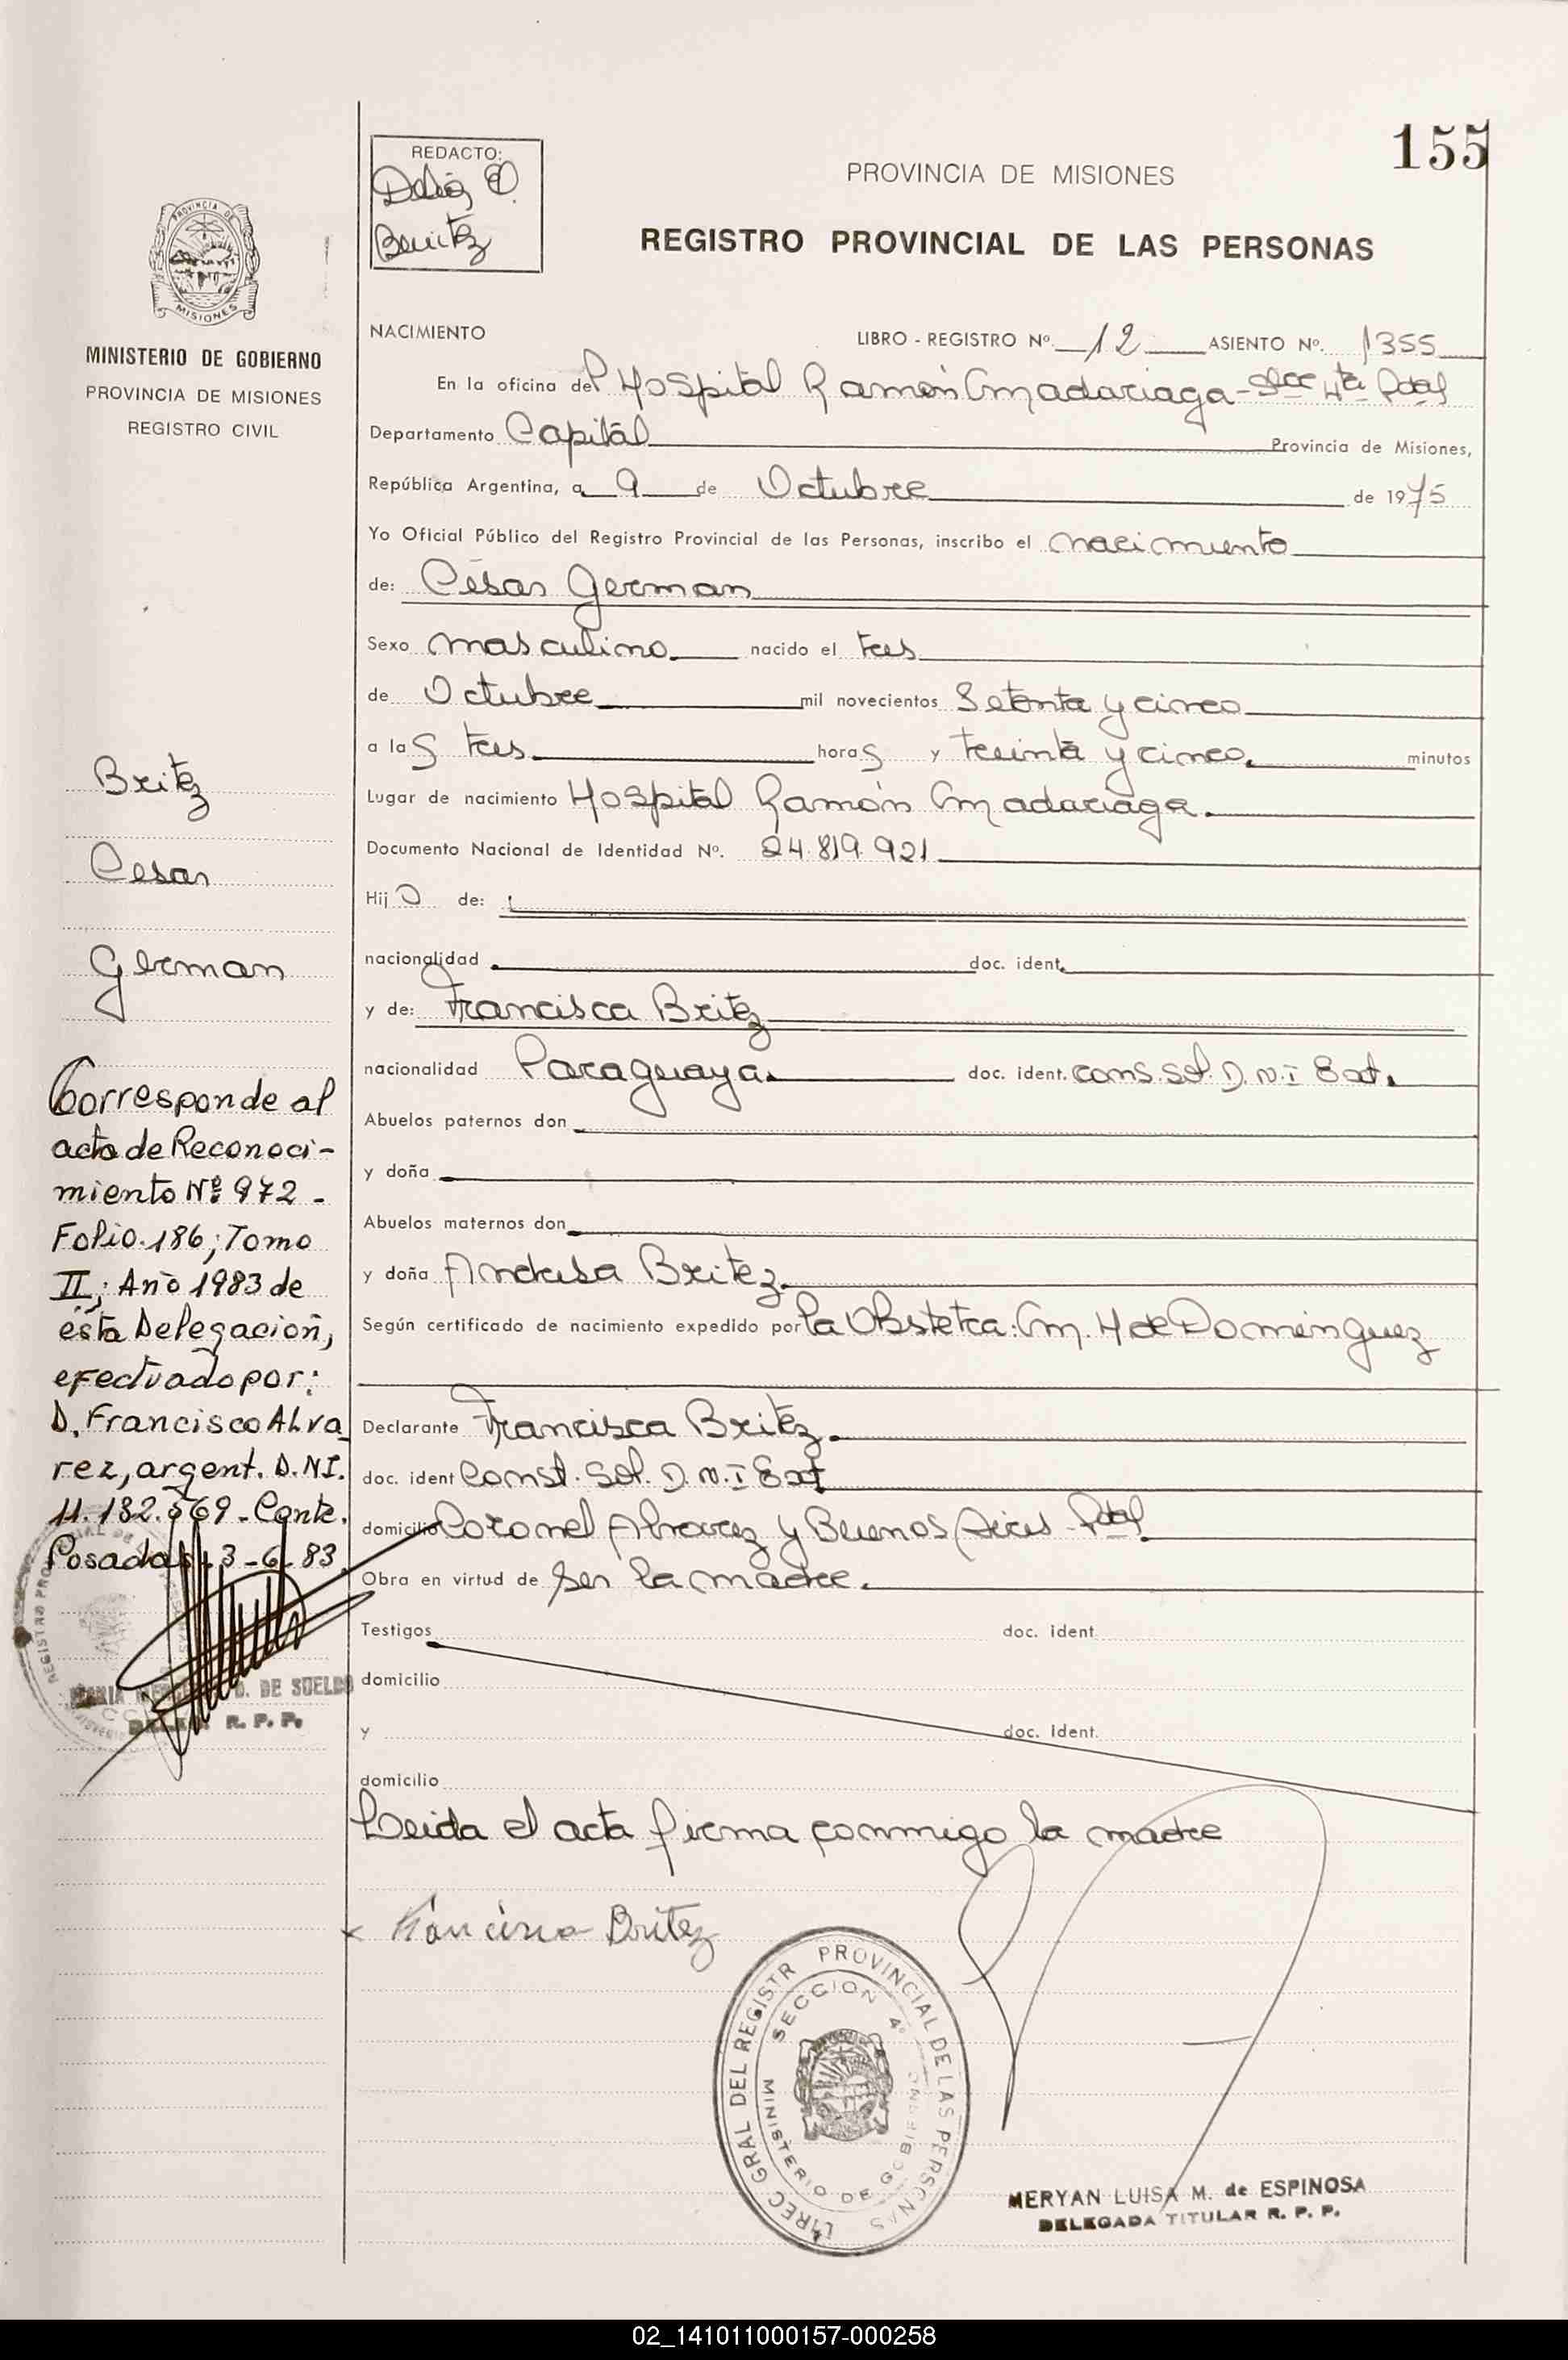 155
REDACTO:
Delia E.
Benitez
PROVINCIA DE MISIONES
REGISTRO PROVINCIAL DE LAS PERSONAS
PROVINCIA DE
MISIONES
MINISTERIO DE GOBIERNO
PROVINCIA DE MISIONES
REGISTRO CIVIL
NACIMIENTO LIBRO - REGISTRO Nº. 12 ASIENTO Nº. 1355
En la oficina del Hospital Ramón Madariaga - Sec 4ta Pdas
Departamento Capital Provincia de Misiones,
República Argentina, a 9 de Octubre de 1975
Yo Oficial Público del Registro Provincial de las Personas, inscribo el nacimiento
de: César German
Sexo masculino nacido el tres
de Octubre mil novecientos Setenta y cinco
a las tres horas y treinta y cinco minutos
Lugar de nacimiento Hospital Ramón Madariaga.
Documento Nacional de Identidad Nº. 24.819.921
Hijo de:
nacionalidad doc. ident.
y de: Francisca Britez
nacionalidad Paraguaya. doc. ident. cons. sol. D.N.I Ext.
Abuelos paternos don
y doña
Abuelos maternos don
y doña Andresa Britez
Según certificado de nacimiento expedido por la Obstetra: M. H de Dominguez
Declarante Francisca Britez.
doc. ident Const. Sol. D.N.I Ext
domicilio Coronel Alvarez y Buenos Aires - Pdas
Obra en virtud de ser la madre.
Testigos doc. ident.
domicilio
y doc. Ident.
domicilio
Leida el acta firma conmigo la madre
x Francisca Britez
Britez
Cesar
German
Corresponde al
acta de Reconoci-
miento Nº 972 -
Folio 186; Tomo
II; Año 1983 de
esta Delegación,
efectuado por:
D. Francisco Alva
rez, argent. D.NI.
11.132.569 - Conte.
Posadas 13-6-83
DE SUELDO
R. P. P.
DIREC GRAL DEL REGISTR PROVINCIAL DE LAS PERSONAS
SECCION 4º
MINISTERIO DE GOBIERNO
MERYAN LUISA M. de ESPINOSA
DELEGADA TITULAR R. P. P.
02_141011000157-000258